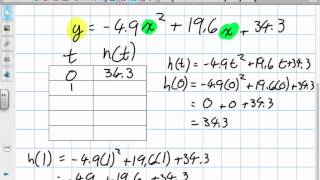 y = -4.9x² + 19.6x + 34.3
t h(t)
0 34.3
1
h(t) = -4.9t² + 19.6t + 34.3
h(0) = -4.9(0)² + 19.6(0) + 34.3
= 0 + 0 + 34.3
= 34.3
h(1) = -4.9(1)² + 19.6(1) + 34.3
= -4.9 + 19.6 + 34.3